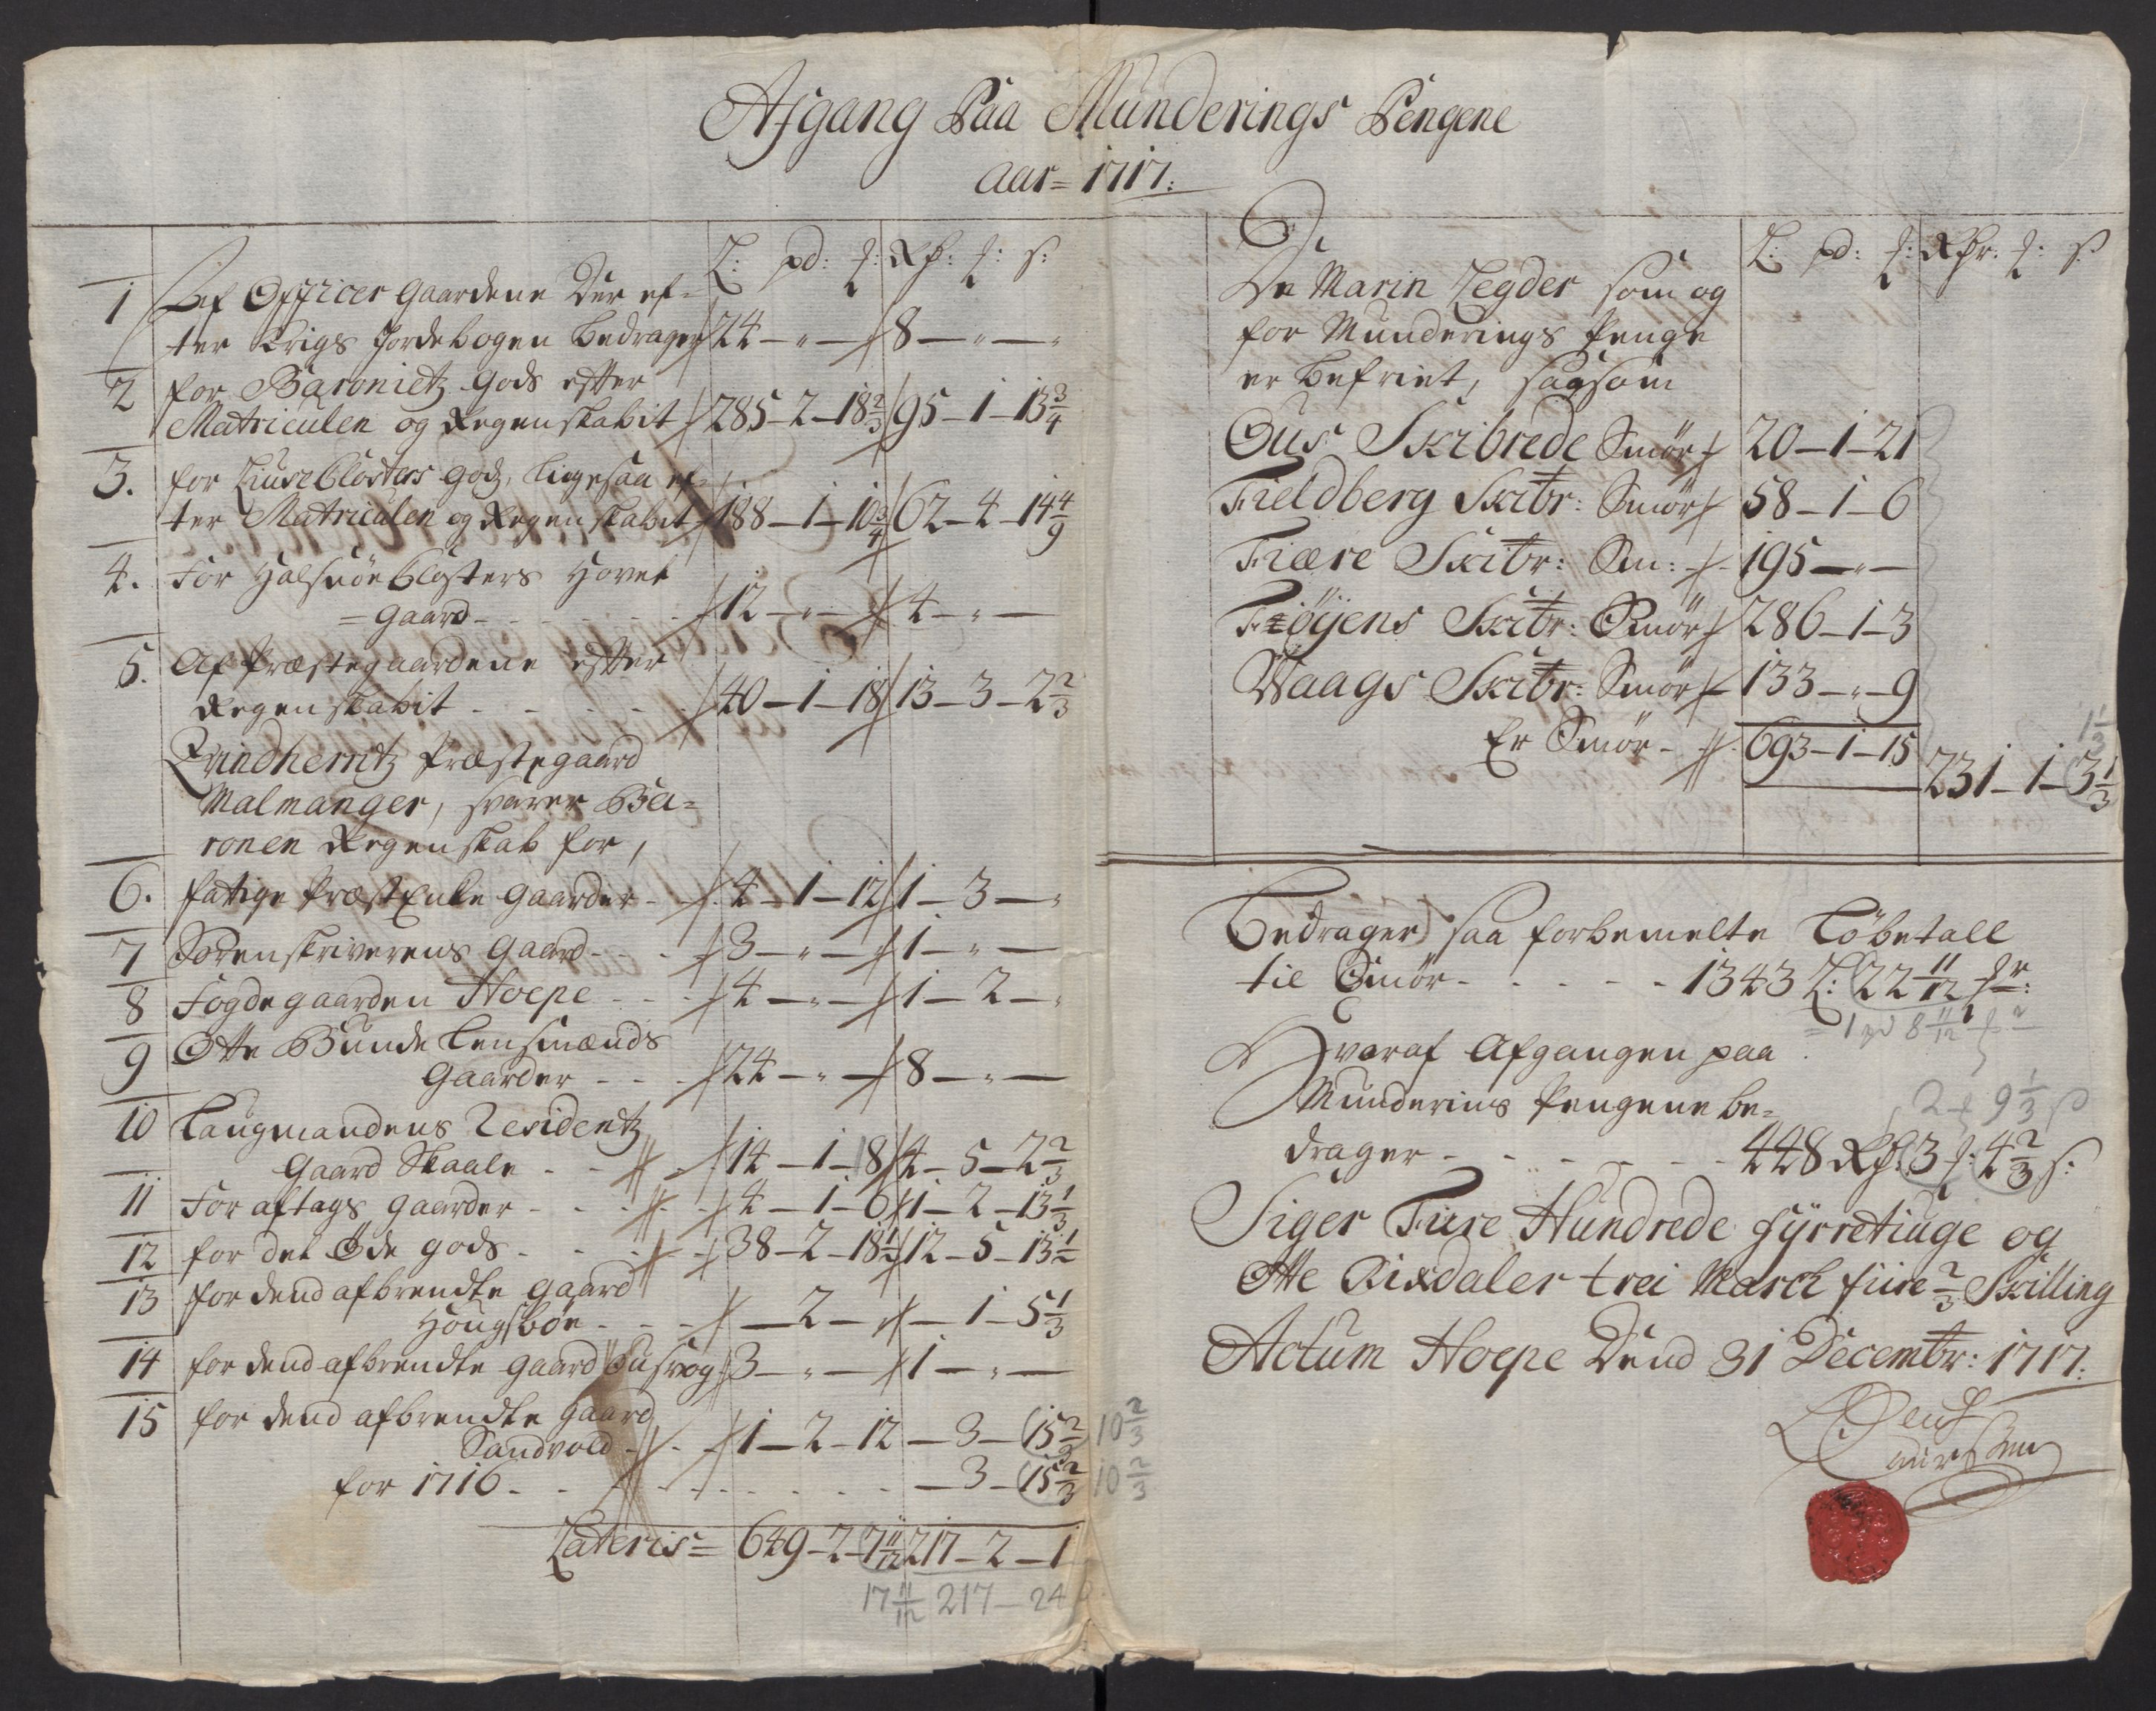 Afgang Paa Munderings Pengene
Aar = 1717:
L: pd: f: Rd: f: s:
1 Af Officer Gaardene Der ef=
ter Krigs Jordebogen bedrager 24 — " — 8 — " — "
2 for Baronietz Gods efter
Matriculen og Regenskabit 285 – 2 – 18 2/3 95 – 1 – 13 3/4
3. for Liuse Closters Gods, ligesaa ef=
ter Matriculen og Regenskabit 188 – 1 – 10 3/4 62 – 4 – 14 4/9
4. For Halsnöe Closters Hovet
= Gaard - - - - - 12 — " — 4 — " —
5. Af Præstegaardene efter
Regenskabit - - - - 40 – 1 – 18 13 – 3 – 2 2/3
Qvindherritz Præstegaard
Malmanger, svarer Ba=
ronen Regenskab for,
6. fatige Præst Enke Gaarder - - 4 – 1 – 12 1 – 3 — "
7 Sorenskriverens Gaard - - - 3 — " — 1 — " —
8 Fogdegaarden Hoepe - - - 4 — " — 1 – 2 — "
9 Otte Bunde Lensmænds
Gaarder - - - 24 — " — 8 — " —
10 Laugmandens Residentz
Gaard Skaale - - - 14 – 1 – 18 4 – 5 – 2 2/3
11 For aftags gaarder - - - 4 – 1 – 6 1 – 2 – 13 1/3
12 for det Öde gods - - - 38 – 2 – 18 1/2 12 – 5 – 13 1/2
13 for dend afbrendte Gaard
Hougsböe - - - — 2 — — 1 – 5 1/3
14 for dend afbrendte Gaard Husevog 3 — " — 1 — " —
15 for dend afbrendte Gaard
Sandvold - - 1 – 2 – 12 — 3 – 15 2/3 10 2/3
for 1716 - - - - - — 3 – 15 2/3 10 2/3
Lateris = 649 – 2 – 7 11/12 217 – 2 – 1
17 11/12 217 – 24
L: pd: f: Rdr. f: s
De Marin Legder som og
for Munderings Penge
er befriet, saasom
Ous Skibrede Smör 20 – 1 – 21
Fieldberg Skibr: Smör 58 – 1 – 6
Fiære Skibr: Sm: 195 — " —
Föÿens Skibr: Smör 286 – 1 – 3
Waags Skibr: Smör 133 – " – 9
Er Smör - 693 – 1 – 15
1 1/3
231 – 1 – 3 1/3
Bedrager saa forbemelte Löbetall
til Smör - - - - - 1343 L: 22 11/12 :
= 1 pd 8 11/12
Hvoraf Afgangen paa
Munderins Pengene be=
2 9 1/3
drager - - - - - 448 Rd: 3 f: 4 2/3 s:
Siger Fiire Hundrede fÿrretiuge og
Otte Rixdaler trei March fiire 2/3 Skilling
Actum Hoepe Dend 31 Decembr: 1717.